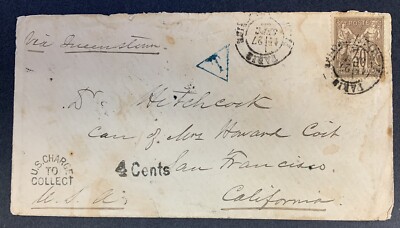 Via Queenstown
T
PARIS
30
Dr. Hitchcock
Care of Mrs Howard Coit
San Francisco.
California.
U.S. CHARGE
TO
COLLECT
4 Cents
U. S. A.